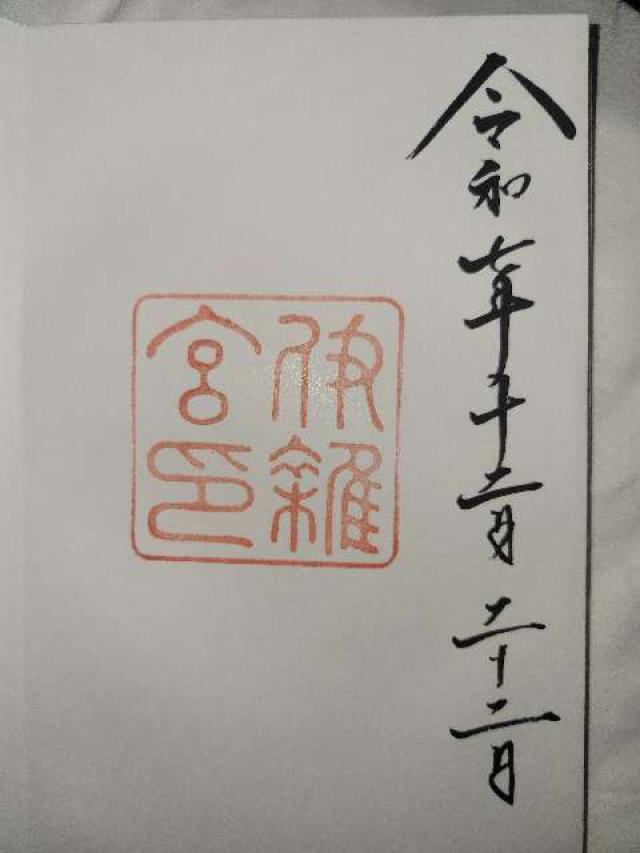 令和七年十二月二十二日
伊雜宮印